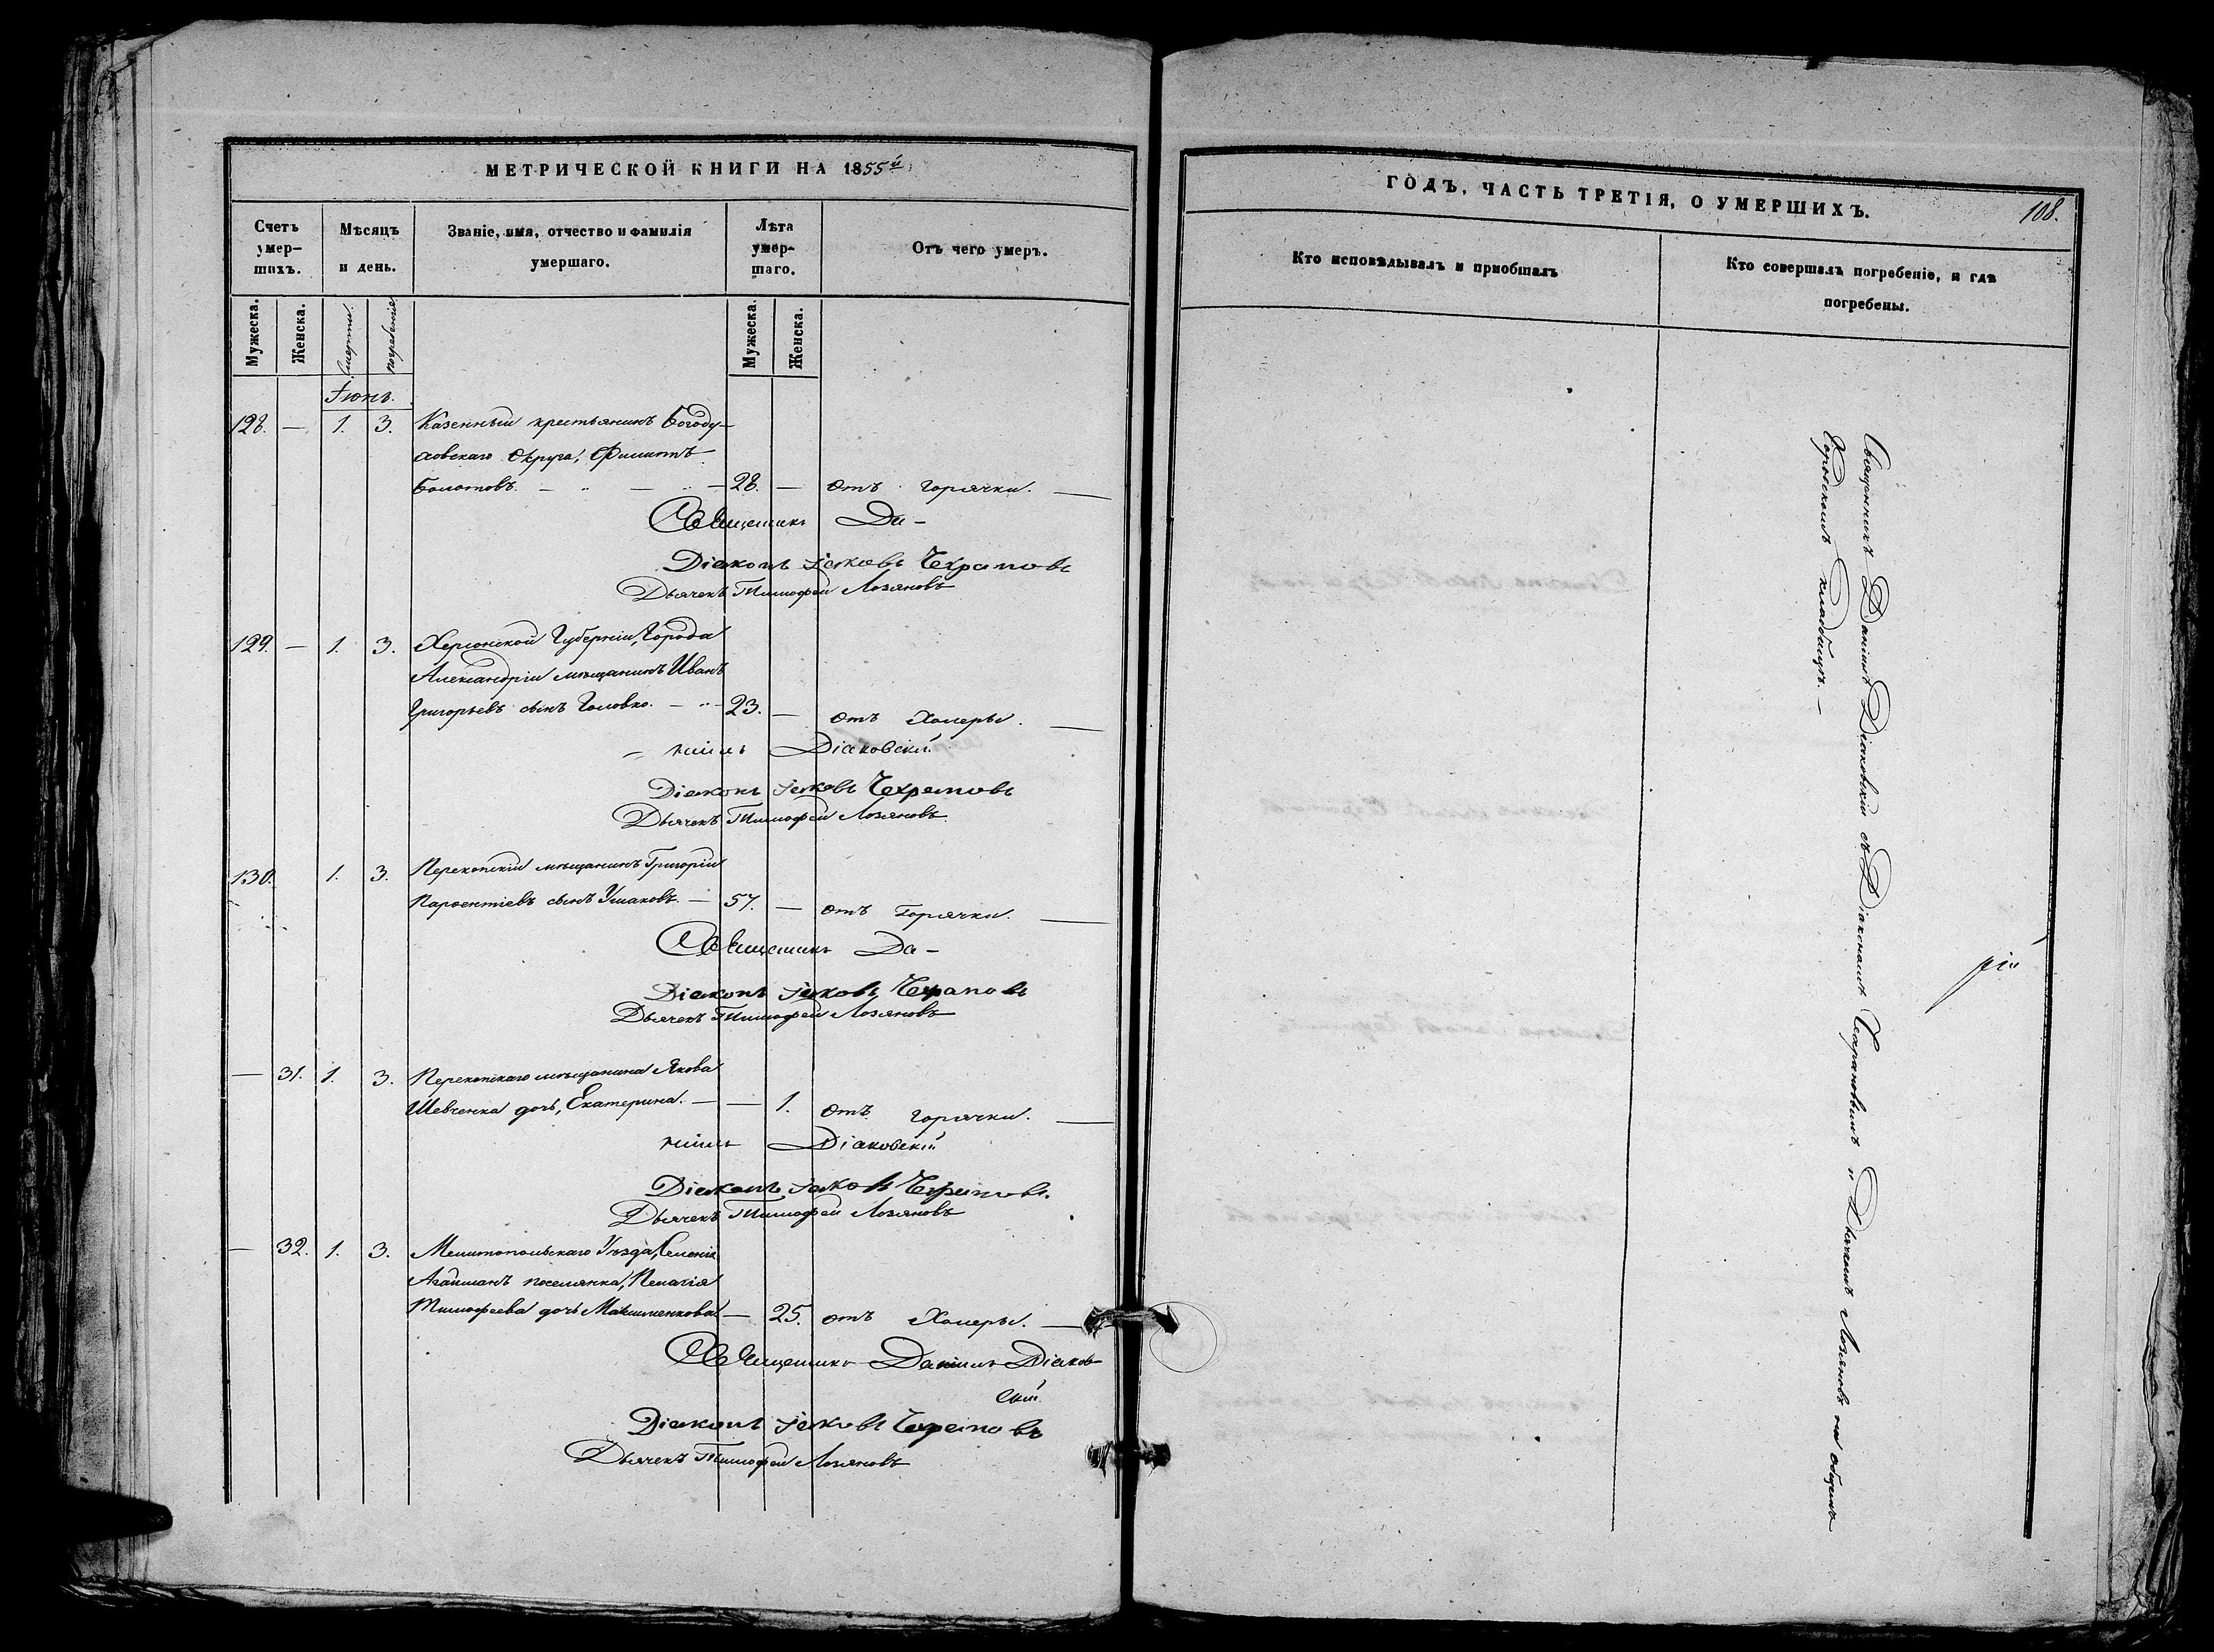 МЕТРИЧЕСКОЙ КНИГИ НА 1855й
Счетъ умер-шихъ. Мѣсяцъ и день. Званіе, имя, отчество и фамилія умершаго. Лѣта умер-шаго. Отъ чего умеръ.
Мужеска. Женска. Смерти. погребенія Мужеска. Женска.
Іюнь.
128. — 1. 3. Казенный крестьянинъ Богоду-
ховскаго Округа, Филиппъ
Болотовъ. — — 28. — Отъ горячки. —
Священникъ Да-
Діаконъ Іаковъ Чехрановъ
Дьячекъ Тимофей Лозяновъ
129. — 1. 3. Херсонской Губерніи, Города
Александріи мѣщанинъ Иванъ
Григорьевъ сынъ Головко. — 23. — Отъ Холеры. —
— ніилъ Діаковскій
Діаконъ Іаковъ Чехрановъ
Дьячекъ Тимофей Лозяновъ
130. 1. 3. Перекопскій мѣщанинъ Григорій
Парѳентіевъ сынъ Ушаковъ. — 57. — Отъ Горячки. —
Священникъ Да-
Діаконъ Іаковъ Чехрановъ
Дьячекъ Тимофей Лозяновъ
— 31. 1. 3. Перекопскаго мѣщанина Якова
Шевченка дочь, Екатерина. — — 1. Отъ горячки. —
ніилъ Діаковскій
Діаконъ Іаковъ Чехрановъ
Дьячекъ Тимофей Лозяновъ
— 32. 1. 3. Мелитопольскаго Уѣзда, Селенія
Агайманъ поселянка, Пелагія
Тимофеева дочь Максименкова — 25. отъ Холеры. —
Священникъ Даніилъ Діаков-
скій
Діаконъ Іаковъ Чехрановъ
Дьячекъ Тимофей Лозяновъ
ГОДЪ, ЧАСТЬ ТРЕТІЯ, О УМЕРШИХЪ. 108.
Кто исповѣдывалъ и пріобщалъ Кто совершалъ погребеніе, и гдѣ погребены.
Священникъ Даніилъ Діаковскій съ Діакономъ Чехрановымъ и Дьячкомъ Лозяновъ на общемъ
Городскомъ кладбищѣ. —